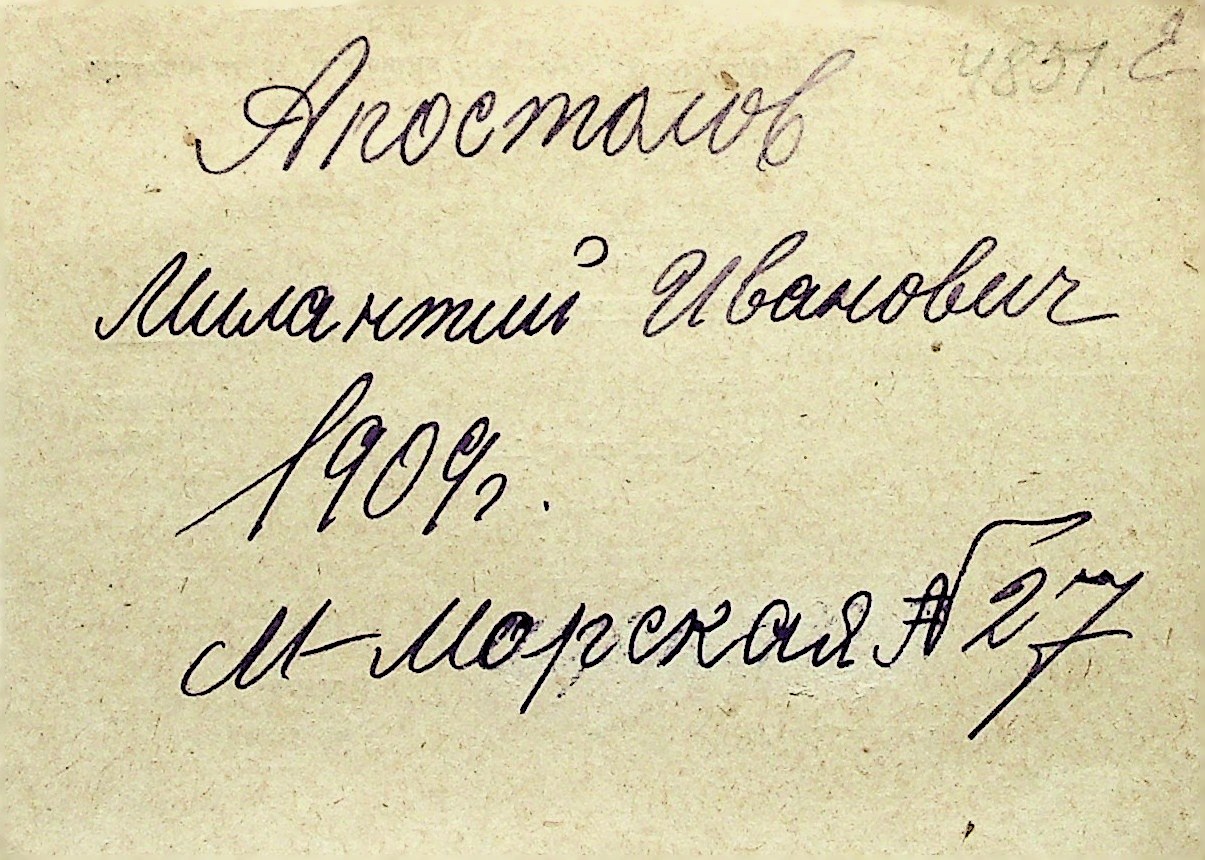 4851. Е
Апостолов
Милантий Иванович
1909г.
М-Морская № 27